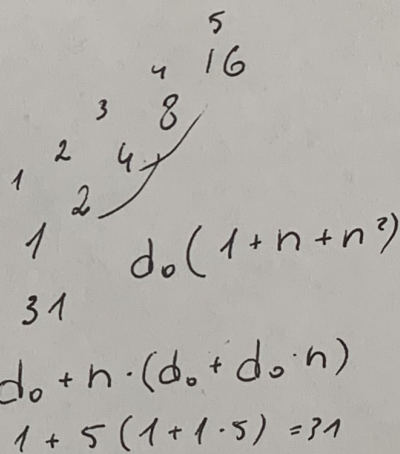 5
4 16
3 8
2 4
1 2
1
d₀(1+n+n²)
31
d₀+n·(d₀+d₀·n)
1+5(1+1·5)=31